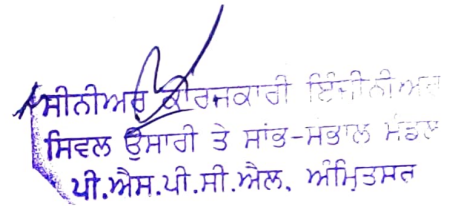 ਸੀਨੀਅਰ ਕਾਰਜਕਾਰੀ ਇੰਜੀਨੀਅਰ
ਸਿਵਲ ਉਸਾਰੀ ਤੇ ਸਾਂਭ-ਸਭਾਲ ਮੰਡਲ
ਪੀ.ਐਸ.ਪੀ.ਸੀ.ਐਲ. ਅੰਮ੍ਰਿਤਸਰ